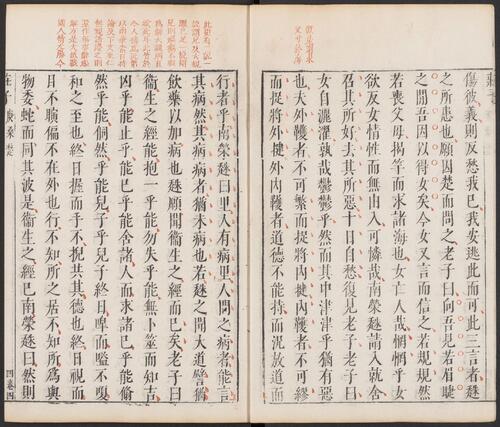 傷彼義則反愁我已我安逃此而可此三言者趎
之所患也願因楚而問之老子曰向吾見若眉睫
之間吾因以得女矣今女又言而信之若規規然
若喪父母揭竿而求諸海也女亡人哉惘惘乎女
欲反女情性而無由入可憐哉南榮趎請入就舍
召其所好去其所惡十日自愁復見老子老子曰
女自灑濯孰哉鬱鬱乎然而其中津津乎猶有惡
也夫外韄者不可繁而捉將內揵內韄者不可繆
而捉將外揵外內韄者道德不能持而況放道而
行者乎南榮趎曰里人有病里人問之病者能言
其病然其病病者猶未病也若趎之聞大道譬猶
飲藥以加病也趎願聞衞生之經而已矣老子曰
衞生之經能抱一乎能勿失乎能無卜筮而知吉
凶乎能止乎能已乎能舍諸人而求諸己乎能翛
然乎能侗然乎能兒子乎兒子終日嘷而嗌不嗄
和之至也終日握而手不掜共其德也終日視而
目不瞚偏不在外也行不知所之居不知所為與
物委蛇而同其波是衞生之經已南榮趎曰然則
莊子
四卷四